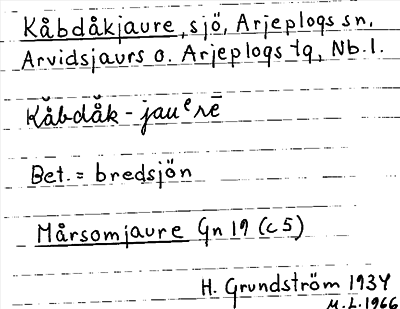 Kåbdåkjaure, sjö, Arjeplogs sn.
Arvidsjaurs o. Arjeplogs tg, Nb. l.
Kå̆bdå̆k - jauᵉrē
Bet. = bredsjön
Mårsomjaure Gn 19 (c5)
H. Grundström 1934
M.L. 1966